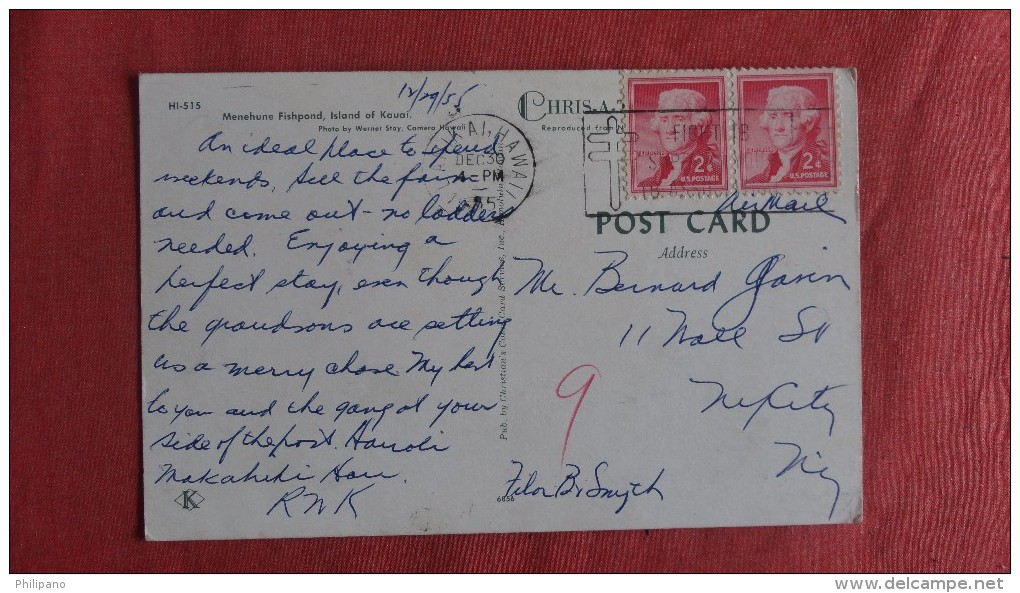 12/29/55
HI-515
Menehune Fishpond, Island of Kauai.
Photo by Werner Stoy, Camera Hawaii
CHRIS-A-
Reproduced from
HAWAII
DEC 30
4 - PM
POST CARD
Address
2¢
U.S. POSTAGE
2¢
U.S. POSTAGE
An ideal place to spend
weekends, sell the farm
and come out - no ladders
needed. Enjoying a
perfect stay, even though
the grandsons are setting
us a merry chase. My best
to you and the gang at your
side of the post. Hauoli
Makahiki Hou.
RWK
Pub. by Christian's Color Card Service, Inc., Honolulu
Air Mail
Mr. Bernard Gavin
11 Wall St
N.Y. City
N.Y.
9
Filor B. Smyth
6856
K
Philipano
www.delcampe.net